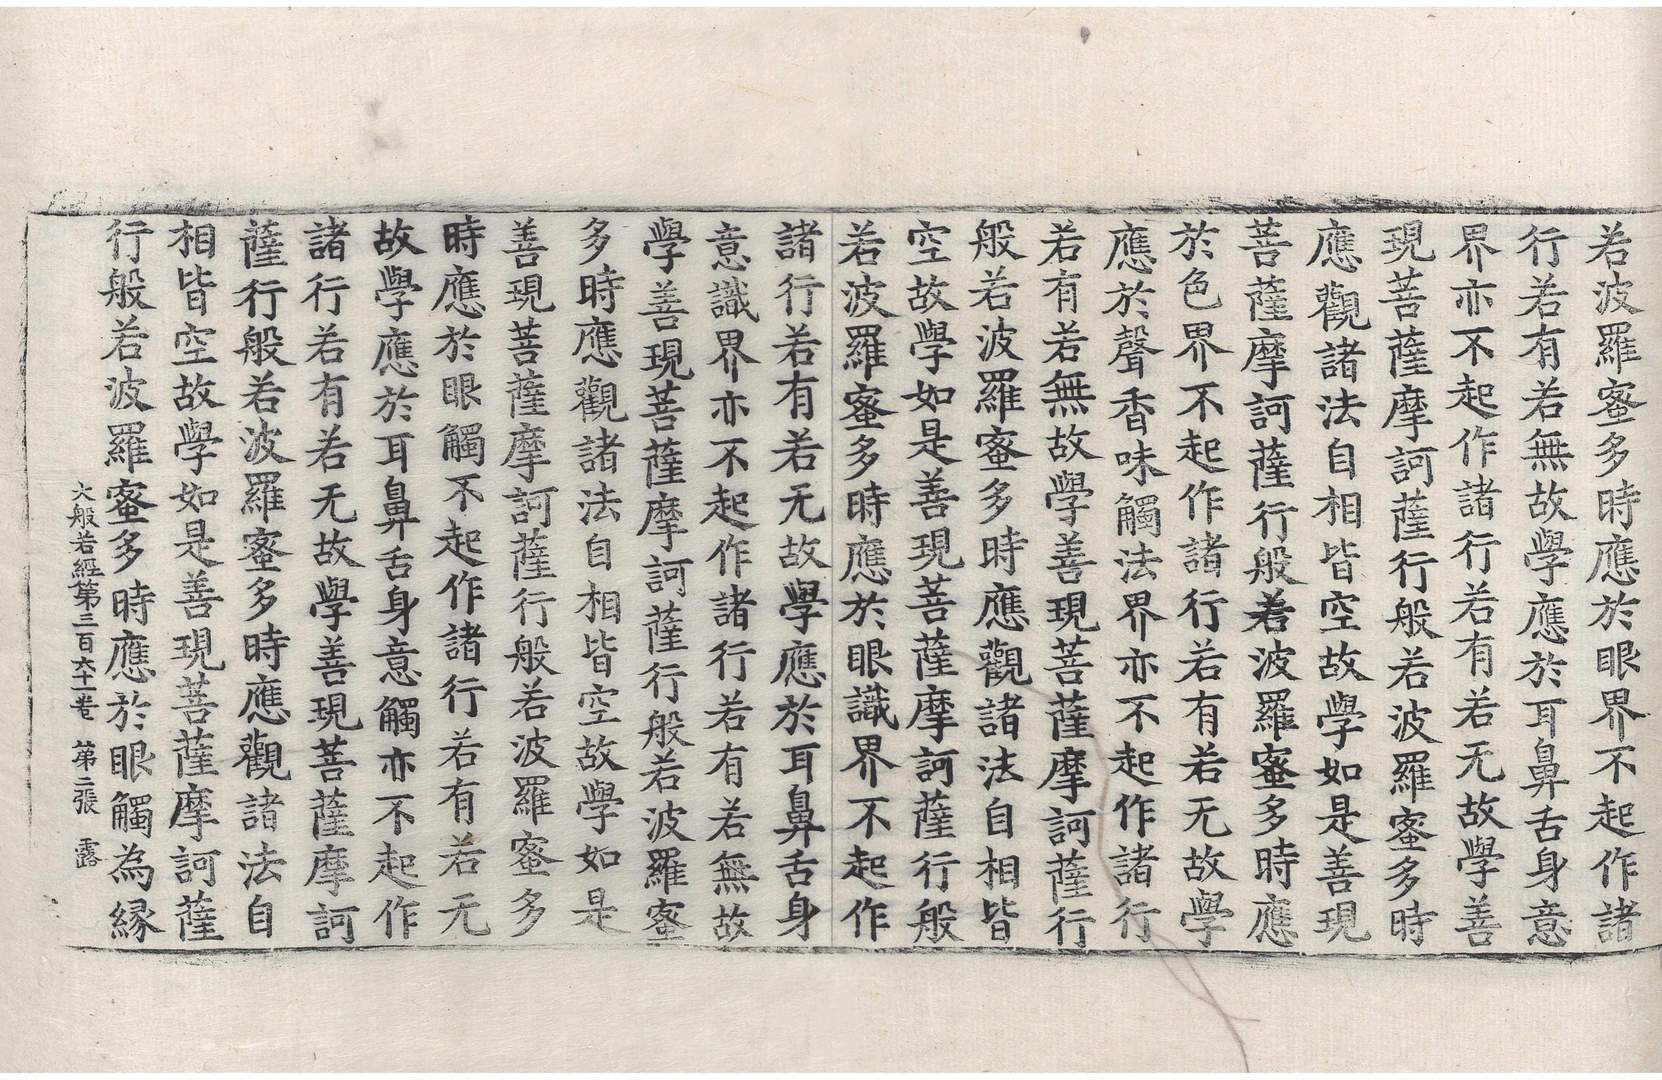 若波羅蜜多時應於眼界不起作諸
行若有若無故學應於耳鼻舌身意
界亦不起作諸行若有若无故學善
現菩薩摩訶薩行般若波羅蜜多時
應觀諸法自相皆空故學如是善現
菩薩摩訶薩行般若波羅蜜多時應
於色界不起作諸行若有若无故學
應於聲香味觸法界亦不起作諸行
若有若無故學善現菩薩摩訶薩行
般若波羅蜜多時應觀諸法自相皆
空故學如是善現菩薩摩訶薩行般
若波羅蜜多時應於眼識界不起作
諸行若有若无故學應於耳鼻舌身
意識界亦不起作諸行若有若無故
學善現菩薩摩訶薩行般若波羅蜜
多時應觀諸法自相皆空故學如是
善現菩薩摩訶薩行般若波羅蜜多
時應於眼觸不起作諸行若有若无
故學應於耳鼻舌身意觸亦不起作
諸行若有若无故學善現菩薩摩訶
薩行般若波羅蜜多時應觀諸法自
相皆空故學如是善現菩薩摩訶薩
行般若波羅蜜多時應於眼觸為緣
大般若經第三百六十一卷 第二張 露